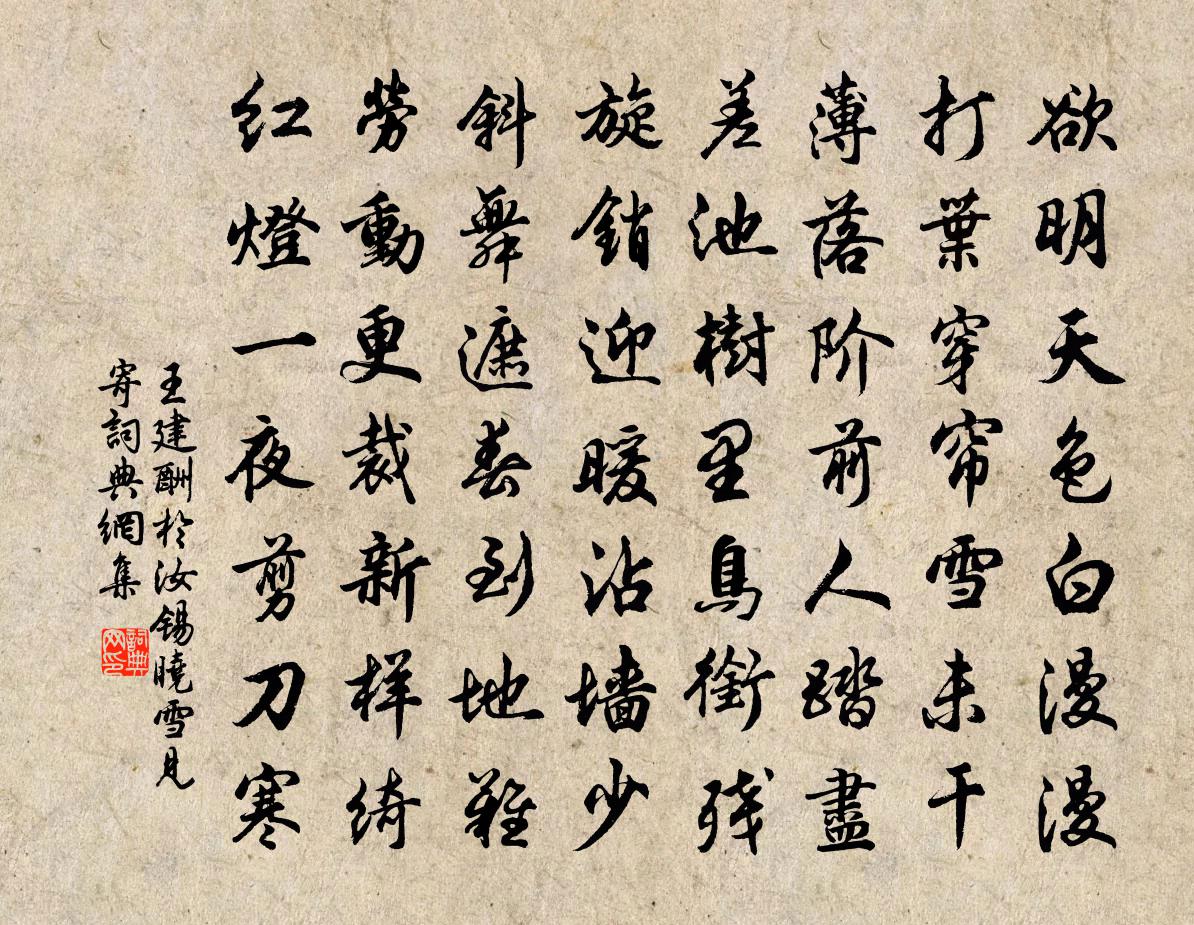 欲明天色白漫漫
打葉穿帘雪未干
薄落阶前人踏盡
差池樹里鳥銜残
旋銷迎暖沾墙少
斜舞遮春到地難
勞動更裁新样绮
红燈一夜剪刀寒
王建酬於汝锡曉雪見
寄詞典網集
詞典
网印